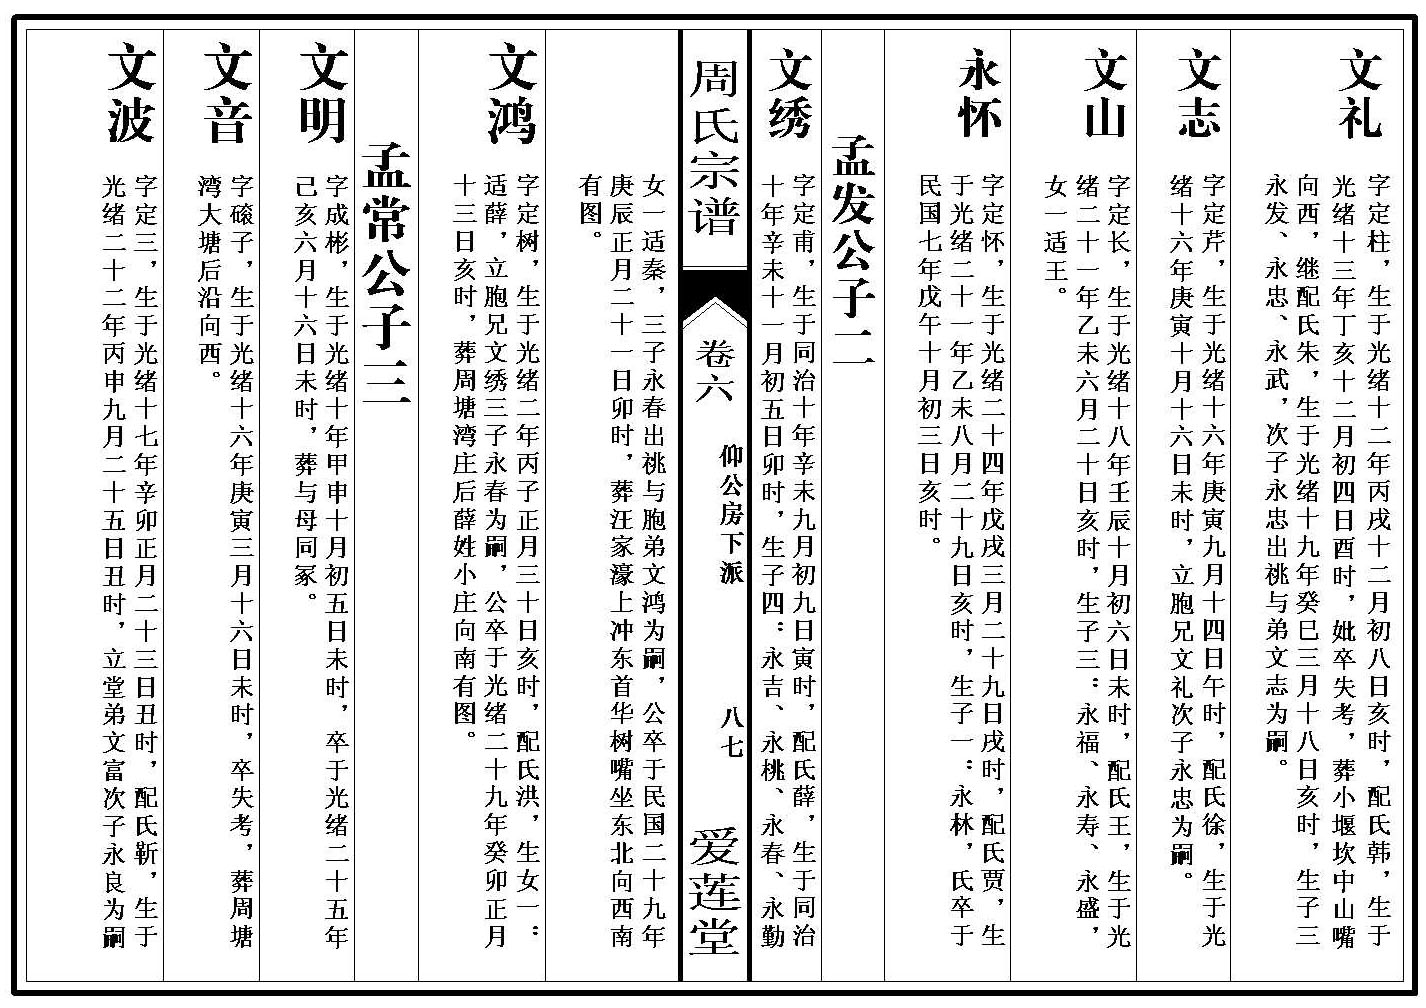 文礼
字定柱，生于光绪十二年丙戌十二月初八日亥时，配氏韩，生于
光绪十三年丁亥十二月初四日酉时，妣卒失考，葬小堰坎中山嘴
向西，继配氏朱，生于光绪十九年癸巳三月十八日亥时，生子三
永发、永忠、永武，次子永忠出祧与弟文志为嗣。
文志
字定芹，生于光绪十六年庚寅九月十四日午时，配氏徐，生于光
绪十六年庚寅十月十六日未时，立胞兄文礼次子永忠为嗣。
文山
字定长，生于光绪十八年壬辰十月初六日未时，配氏王，生于光
绪二十一年乙未六月二十日亥时，生子三：永福、永寿、永盛，
女一适王。
永怀
字定怀，生于光绪二十四年戊戌三月二十九日戌时，配氏贾，生
于光绪二十一年乙未八月二十九日亥时，生子一：永林，氏卒于
民国七年戊午十月初三日亥时。
孟发公子二
文绣
字定甫，生于同治十年辛未九月初九日寅时，配氏薛，生于同治
十年辛未十一月初五日卯时，生子四：永吉、永桃、永春、永勤
周氏宗谱
卷六
仰公房下派
八七
爱莲堂
女一适秦，三子永春出祧与胞弟文鸿为嗣，公卒于民国二十九年
庚辰正月二十一日卯时，葬汪家濠上冲东首华树嘴坐东北向西南
有图。
文鸿
字定树，生于光绪二年丙子正月三十日亥时，配氏洪，生女一：
适薛，立胞兄文绣三子永春为嗣，公卒于光绪二十九年癸卯正月
十三日亥时，葬周塘湾庄后薛姓小庄向南有图。
孟常公子三
文明
字成彬，生于光绪十年甲申十月初五日未时，卒于光绪二十五年
己亥六月十六日未时，葬与母同冢。
文音
字磙子，生于光绪十六年庚寅三月十六日未时，卒失考，葬周塘
湾大塘后沿向西。
文波
字定三，生于光绪十七年辛卯正月二十三日丑时，配氏靳，生于
光绪二十二年丙申九月二十五日丑时，立堂弟文富次子永良为嗣